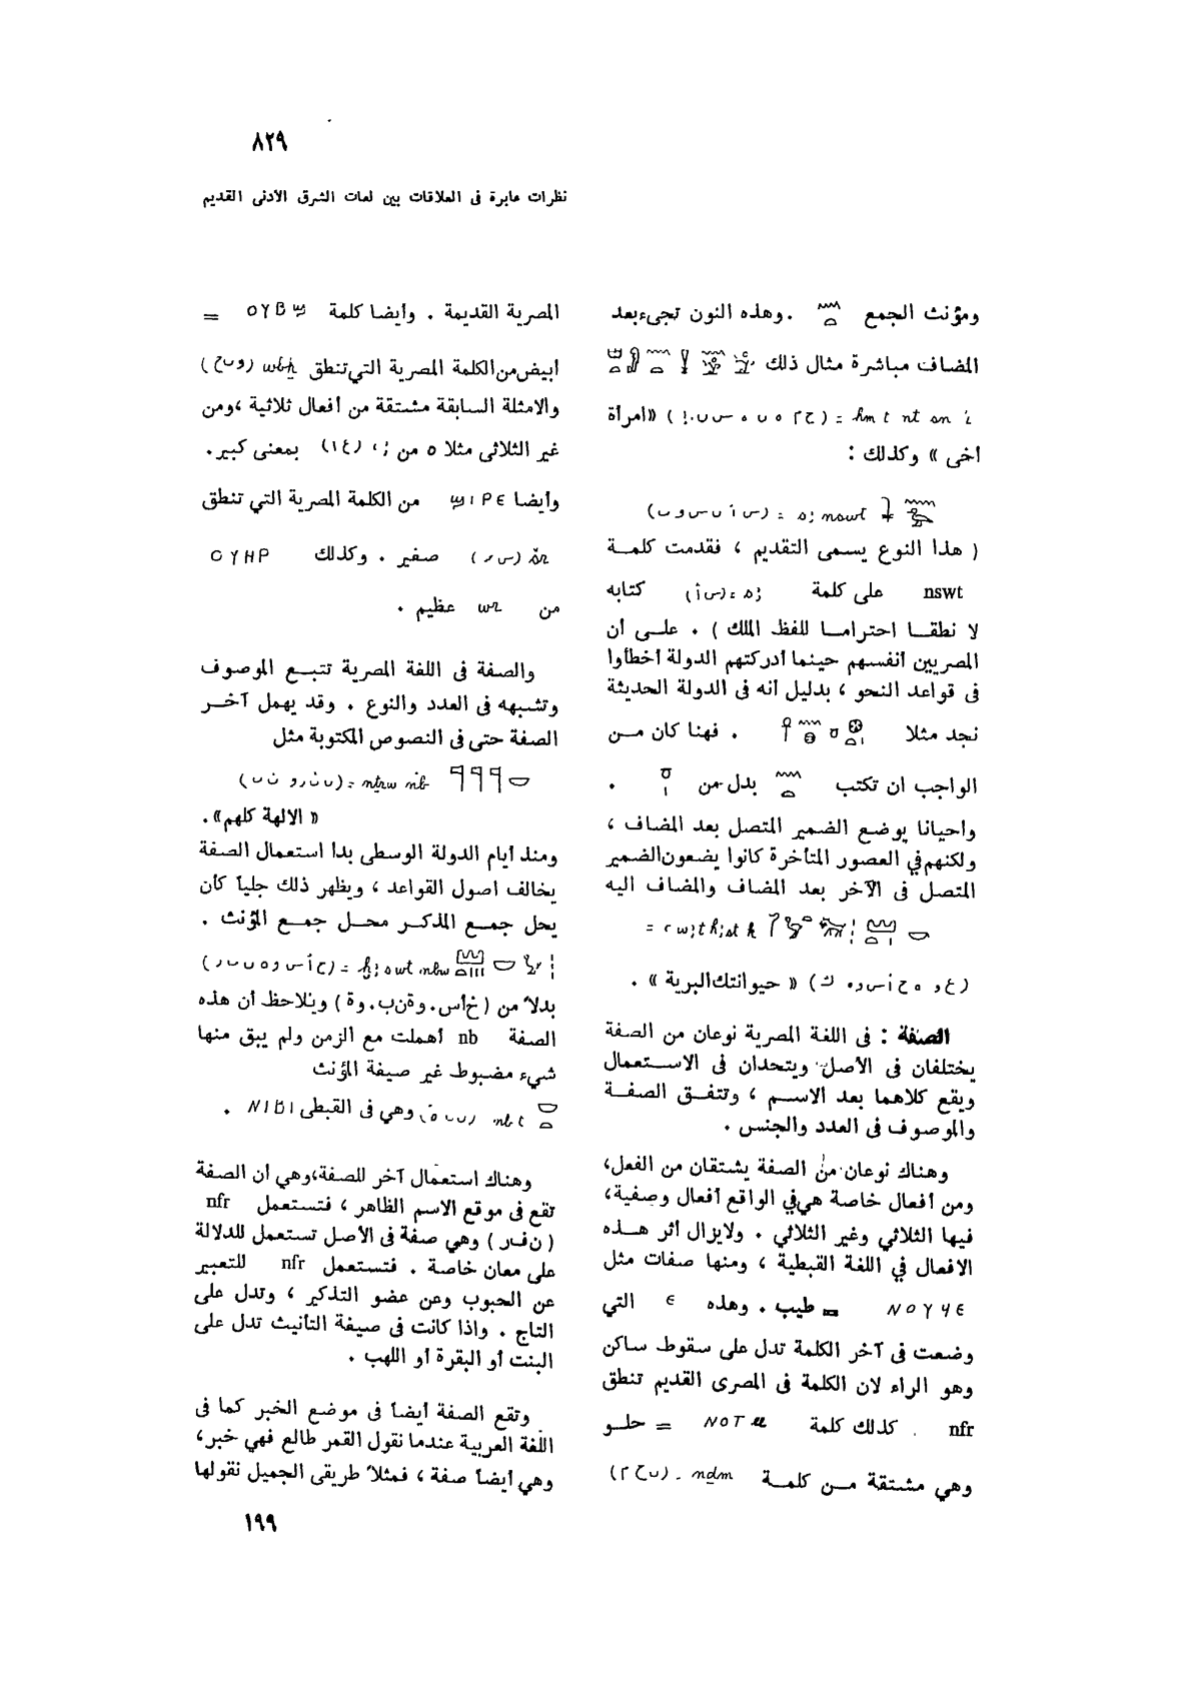 ٨٢٩
نظرات عابرة فى العلاقات بين لغات الشرق الأدنى القديم
ومؤنث الجمع . وهذه النون تجىء بعد
المضاف مباشرة مثال ذلك
«امرأة
أخى » وكذلك :
( هذا النوع يسمى التقديم ، فقدمت كلمـة
nswt على كلمة كتابه
لا نطقـا احترامـا للفظ الملك ) . علـى أن
المصريين أنفسهم حينما أدركتهم الدولة أخطأوا
فى قواعد النحو ، بدليل أنه فى الدولة الحديثة
نجد مثلا . فهنا كان مـن
الواجب ان تكتب بدل من .
وأحيانا يوضع الضمير المتصل بعد المضاف ،
ولكنهم في العصور المتأخرة كانوا يضعون الضمير
المتصل فى الآخر بعد المضاف والمضاف اليه
« حيوانتك البرية » .
الصفة : فى اللغة المصرية نوعان من الصفة
يختلفان فى الأصل ويتحدان فى الاسـتعمال
ويقع كلاهما بعد الاسـم ، وتتفـق الصفـة
والموصوف فى العدد والجنس .
وهناك نوعان من الصفة يشتقان من الفعل،
ومن أفعال خاصة هي في الواقع أفعال وصفية،
فيها الثلاثي وغير الثلاثي . ولايزال أثر هـذه
الافعال في اللغة القبطية ، ومنها صفات مثل
ΝΟΥϤΕ = طيب . وهذه ϵ التي
وضعت فى آخر الكلمة تدل على سقوط ساكن
وهو الراء لان الكلمة فى المصرى القديم تنطق
nfr . كذلك كلمة ΝΟΤⲙ = حلـو
وهي مشتقة مـن كلمـة nḏm
المصرية القديمة . وأيضا كلمة ΟΥΒϢ =
أبيض من الكلمة المصرية التي تنطق wbḫ (وبح)
والامثلة السابقة مشتقة من أفعال ثلاثية ،ومن
غير الثلاثى مثلا ٥ من بمعنى كبير .
وأيضا ϢΙΡΕ من الكلمة المصرية التي تنطق
صغير . وكذلك ΟΥΗΡ
من wr عظيم .
والصفة فى اللغة المصرية تتبـع الموصوف
وتشبهه فى العدد والنوع . وقد يهمل آخـر
الصفة حتى فى النصوص المكتوبة مثل
« الالهة كلهم» .
ومنذ أيام الدولة الوسطى بدأ استعمال الصفة
يخالف اصول القواعد ، ويظهر ذلك جلياً كأن
يحل جمـع المذكـر محـل جمـع المؤنث .
بدلاً من ( خأس.وةنب.وة ) ويلاحظ أن هذه
الصفة nb أهملت مع الزمن ولم يبق منها
شيء مضبوط غير صيغة المؤنث
nb.t وهي فى القبطى ΝΙΒΙ .
وهناك استعمال آخر للصفة،وهي أن الصفة
تقع فى موقع الاسم الظاهر ، فتستعمل nfr
( ن ف ر ) وهي صفة فى الأصل تستعمل للدلالة
على معان خاصة . فتستعمل nfr للتعبير
عن الحبوب وعن عضو التذكير ، وتدل على
التاج . واذا كانت فى صيغة التأنيث تدل على
البنت أو البقرة أو اللهب .
وتقع الصفة أيضاً فى موضع الخبر كما فى
اللغة العربية عندما نقول القمر طالع فهي خبر،
وهي أيضاً صفة ، فمثلاً طريقى الجميل نقولها
١٩٩